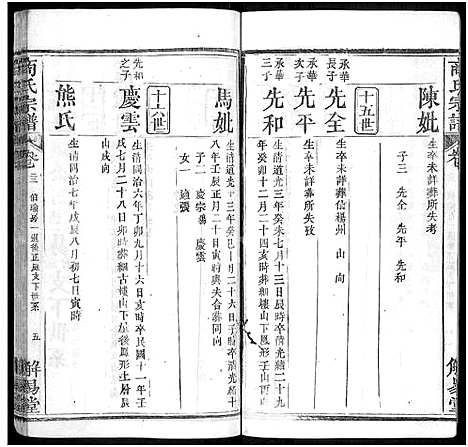 商氏宗譜
卷
解易堂
陳妣
生卒未詳葬所失考
子三 先全 先平 先和
十五世
承華
宗子
先全
生卒未詳葬信楊州 山 向
承華
亥子
先平
生卒未詳葬所失攷
承華
三子
先和
生清道光十三年癸未七月十三日辰時卒清光緒二十九
年癸卯十二月二十四亥時葬細樓山下鳳形壬山丙向
馬妣
生清道光十三年癸巳十一月
八年壬辰正月二十日寅時與夫合葬同向
子二 慶宗殤 慶雲
女一 適張
十六世
先和
之子
慶雲
生清同治六年丁卯九月十六亥時卒民國十一年壬
戌七月二十八日戌時葬細古樓山下后鳳形正壬
山戌向
熊氏
生清同治七年戊辰八月初七日寅時
商氏宗譜
卷三
伯瑜房一選後正庭支下世系
五
解易堂